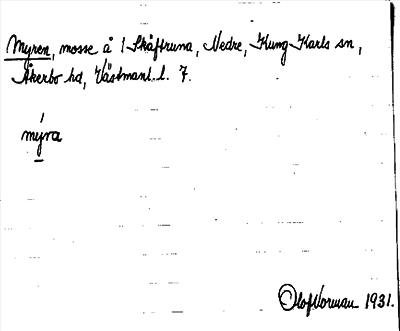 Myren, mosse å 1 Skåftruna, Nedre, Kung Karls sn,
Åkerbo hd, Västmanl. l. 7.
mýra
Olof Norman 1931.